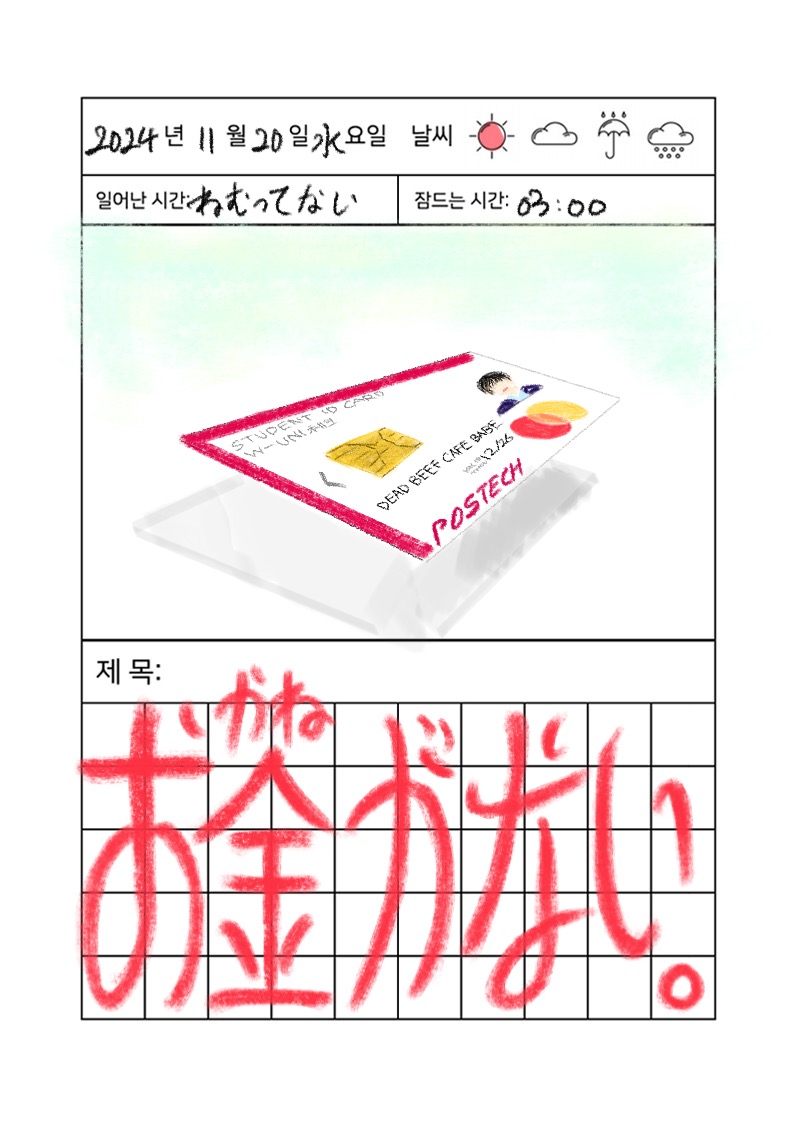 2024년 11월 20일 水요일 날씨
일어난 시간: ねむってない 잠드는 시간: 03:00
STUDENT ID CARD
W-UNI
DEAD BEEF CAFE BABE
12/26
POSTECH
제 목:
かね
お金がない。